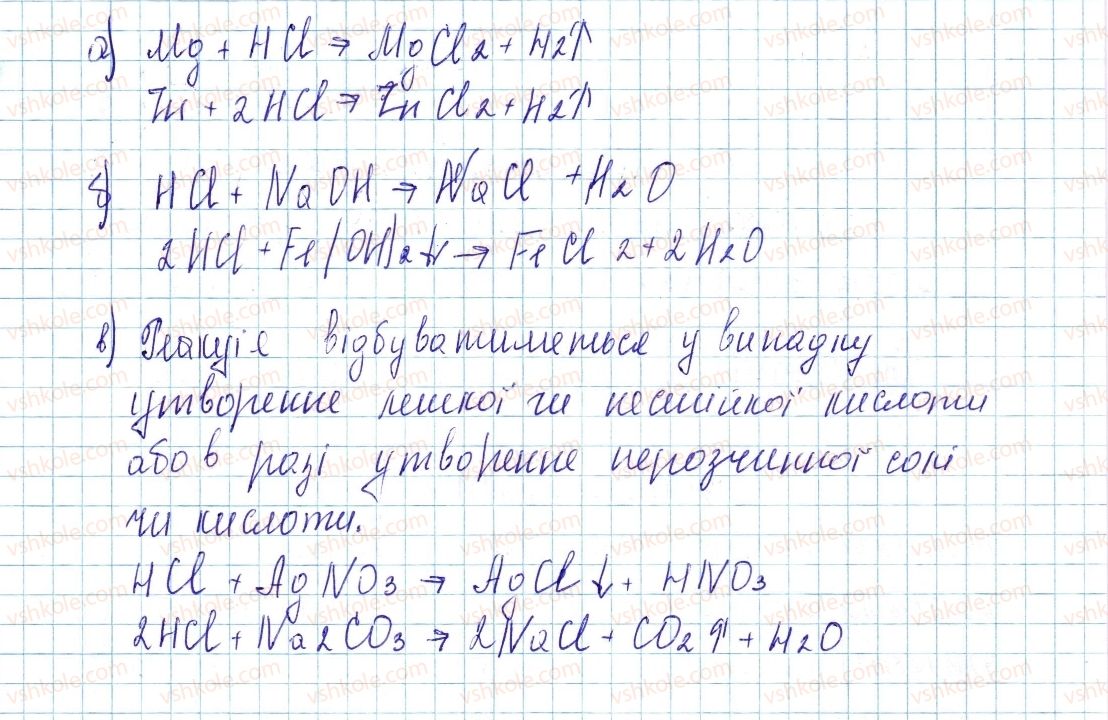 а) Mg + HCl → MgCl2 + H2↑
Zn + 2HCl → ZnCl2 + H2↑
б) HCl + NaOH → NaCl + H2O
2HCl + Fe(OH)2↓ → FeCl2 + 2H2O
в) Реакція відбуватиметься у випадку
утворення леткої чи нестійкої кислоти
або в разі утворення нерозчинної солі
чи кислоти.
HCl + AgNO3 → AgCl↓ + HNO3
2HCl + Na2CO3 → 2NaCl + CO2↑ + H2O
vshkole.com